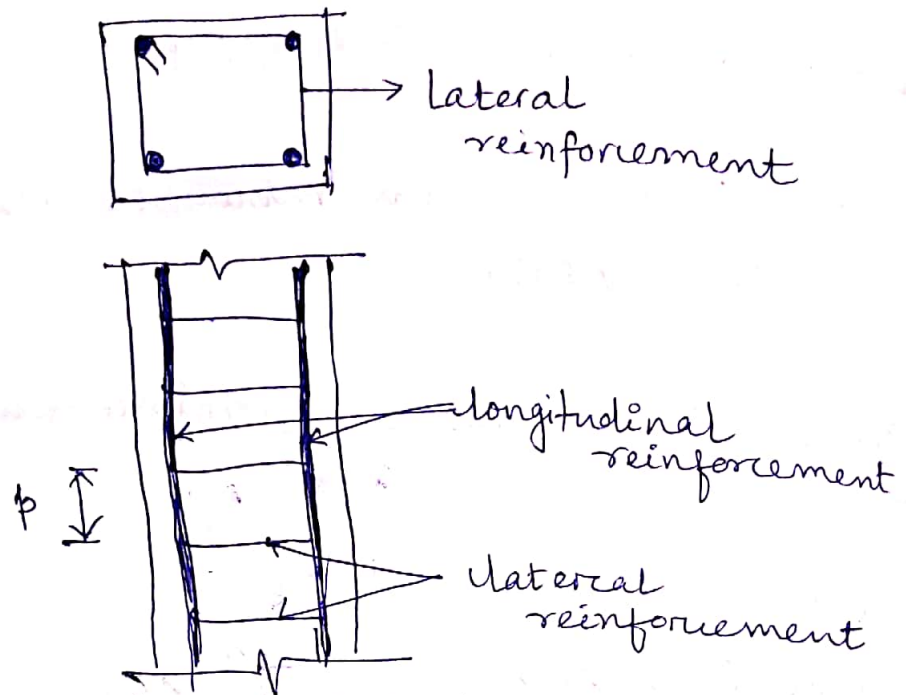 Lateral
reinforcement
longitudinal
reinforcement
p
lateral
reinforcement